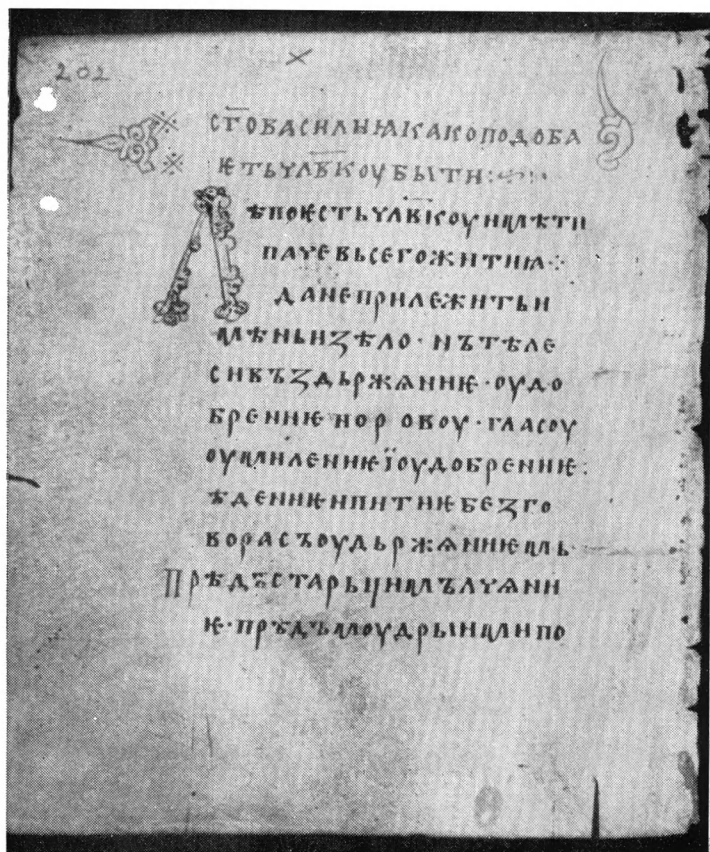 202
СТ҃ОВАСИЛИꙖКАКОПОДОБА
ѤТЬЧЛ҃ВКОУБЫТИ:
ЛѢПОѤСТЬЧЛ҃ВКОУИМѢТИ
ПАЧЕВЬСЕГОЖИТИꙖ
ДАНЕПРИЛЕЖИТЬИ
МѢНЬИЗѢЛО·НЪТѢЛЕ
СИВЪЗДЬРЖѦНИѤ·ОУДО
БРЕНИѤНОРОВОУ·ГЛАСОУ
ОУМИЛЕНИѤЇОУДОБРЕНИѤ:
ѢДЕНИѤИПИТИѤБЕЗГО
ВОРАСЪОУДЬРЖѦНИѤМЬ·
ПРѢДЪСТАРЬЦИМЪЛЧѦНИ
Ѥ·ПРѢДЪМОУДРЫИМИПО